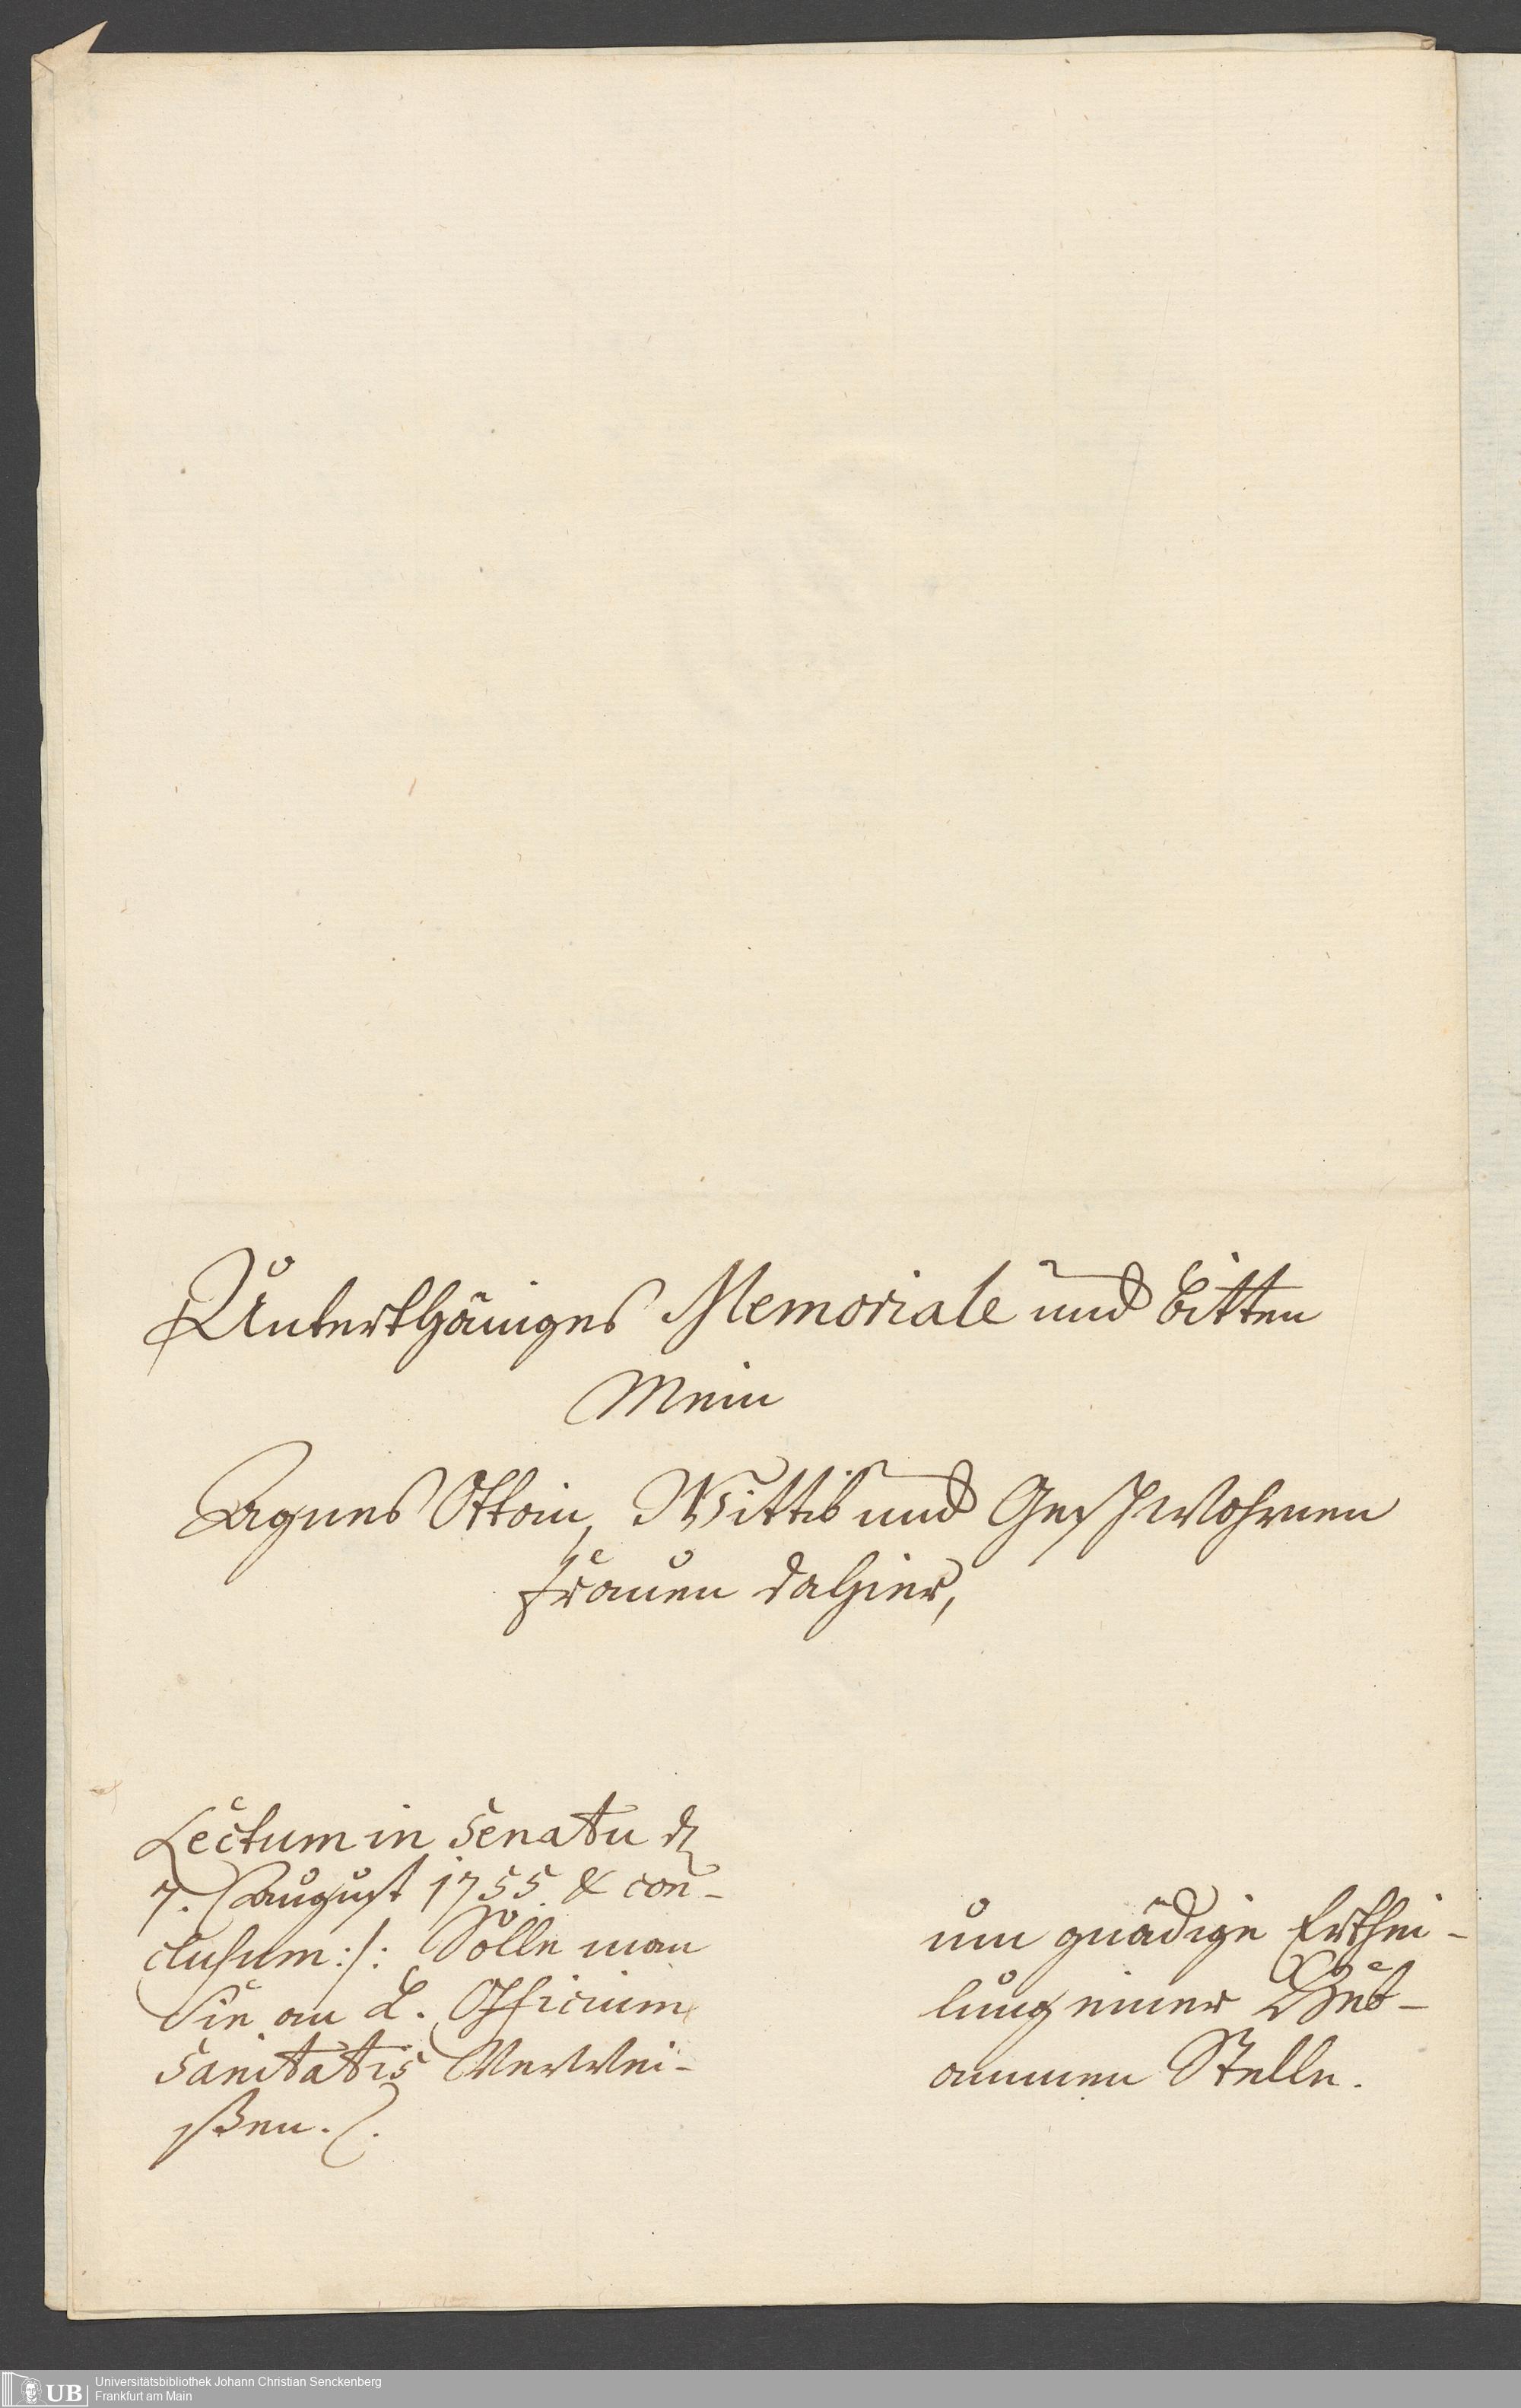 Unterthäniges Memoriale und bitten
Mein
Agnes Ottoin, Wittib und Geschwohrnen
frauen dahier,
Lectum in Senatu d
7. August 1755. & con-
clusum:/: Solle man
Sie an L. Officium
Sanitatis Verwei-
ßen./.
um gnädige Erthei-
lung einer Heb-
ammen Stelle.
UB
Universitätsbibliothek Johann Christian Senckenberg
Frankfurt am Main